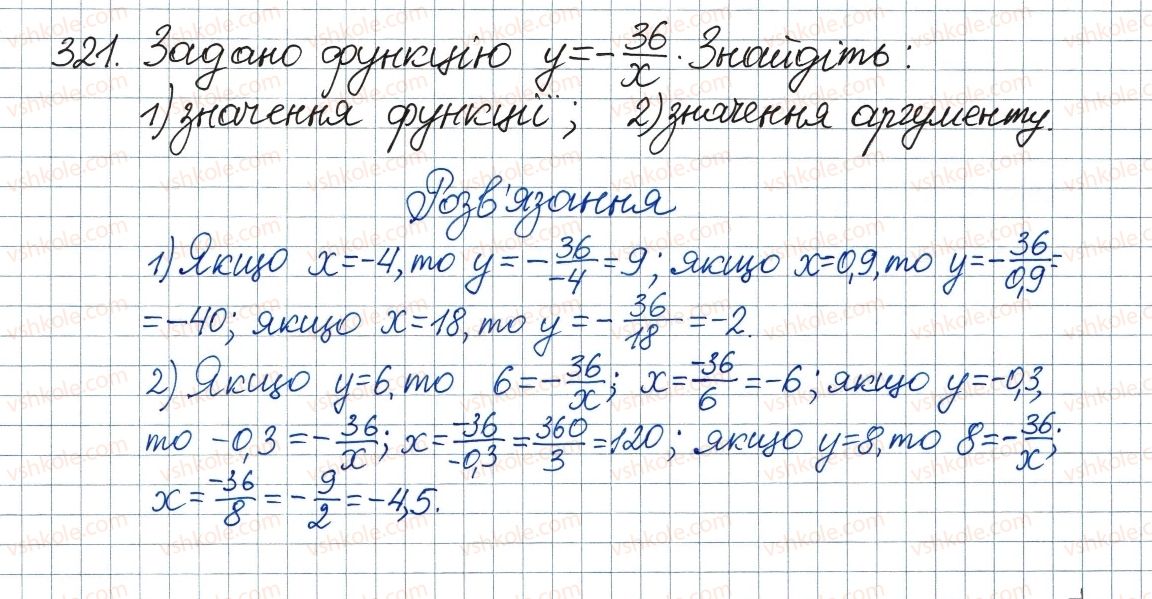 321. Задано функцію y = -36/x. Знайдіть:
1) значення функції; 2) значення аргументу.
Розв'язання
1) Якщо x=-4, то y = -36/-4 = 9; якщо x=0,9, то y = -36/0,9 =
= -40; якщо x=18, то y = -36/18 = -2.
2) Якщо y=6, то 6 = -36/x; x = -36/6 = -6; якщо y=-0,3,
то -0,3 = -36/x; x = -36/-0,3 = 360/3 = 120; якщо y=8, то 8 = -36/x;
x = -36/8 = -9/2 = -4,5.